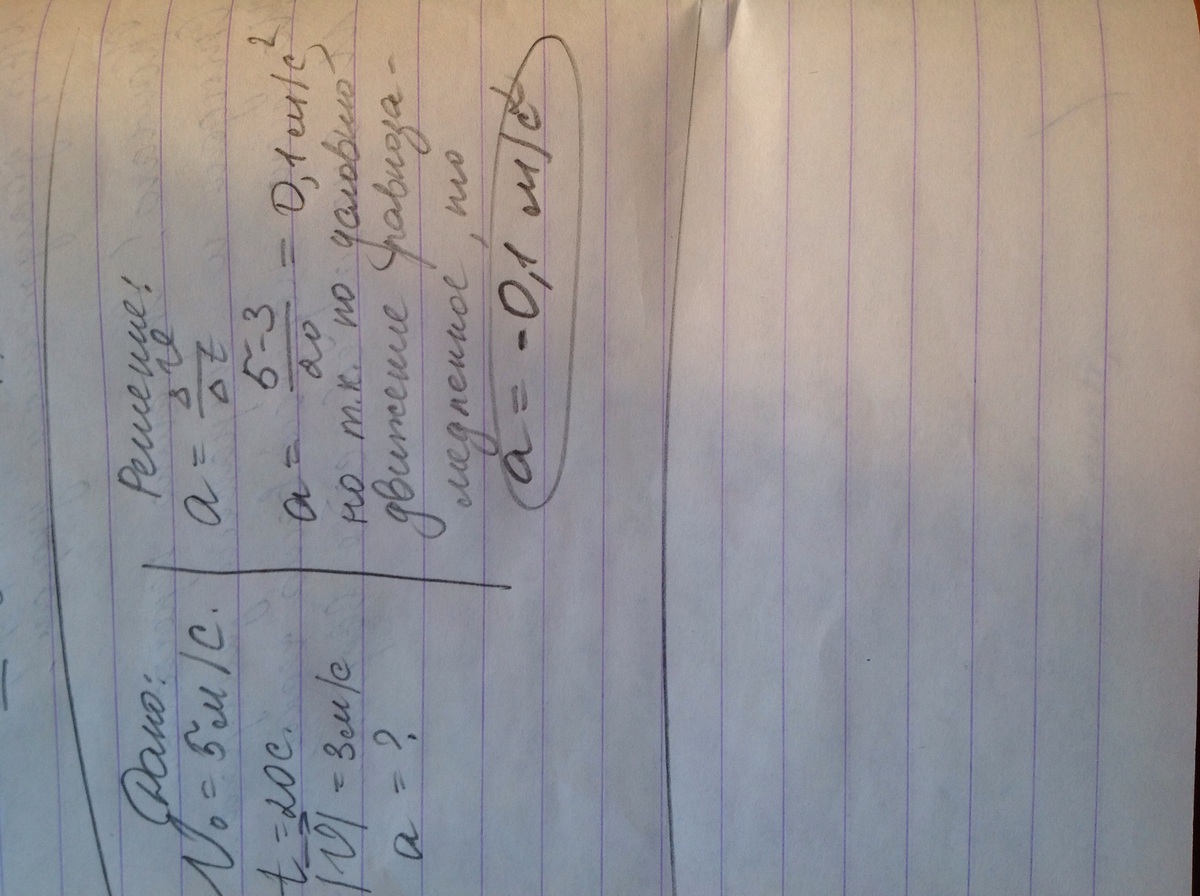 Дано:
V₀ = 5 м/с.
t = 20с.
|V| = 3м/с
a = ?
Решение:
a = Δv/Δt
a = 5-3/20 = 0,1 м/с²
но т.к. по условию
движение равноза-
медленное, то
a = -0,1 м/с²